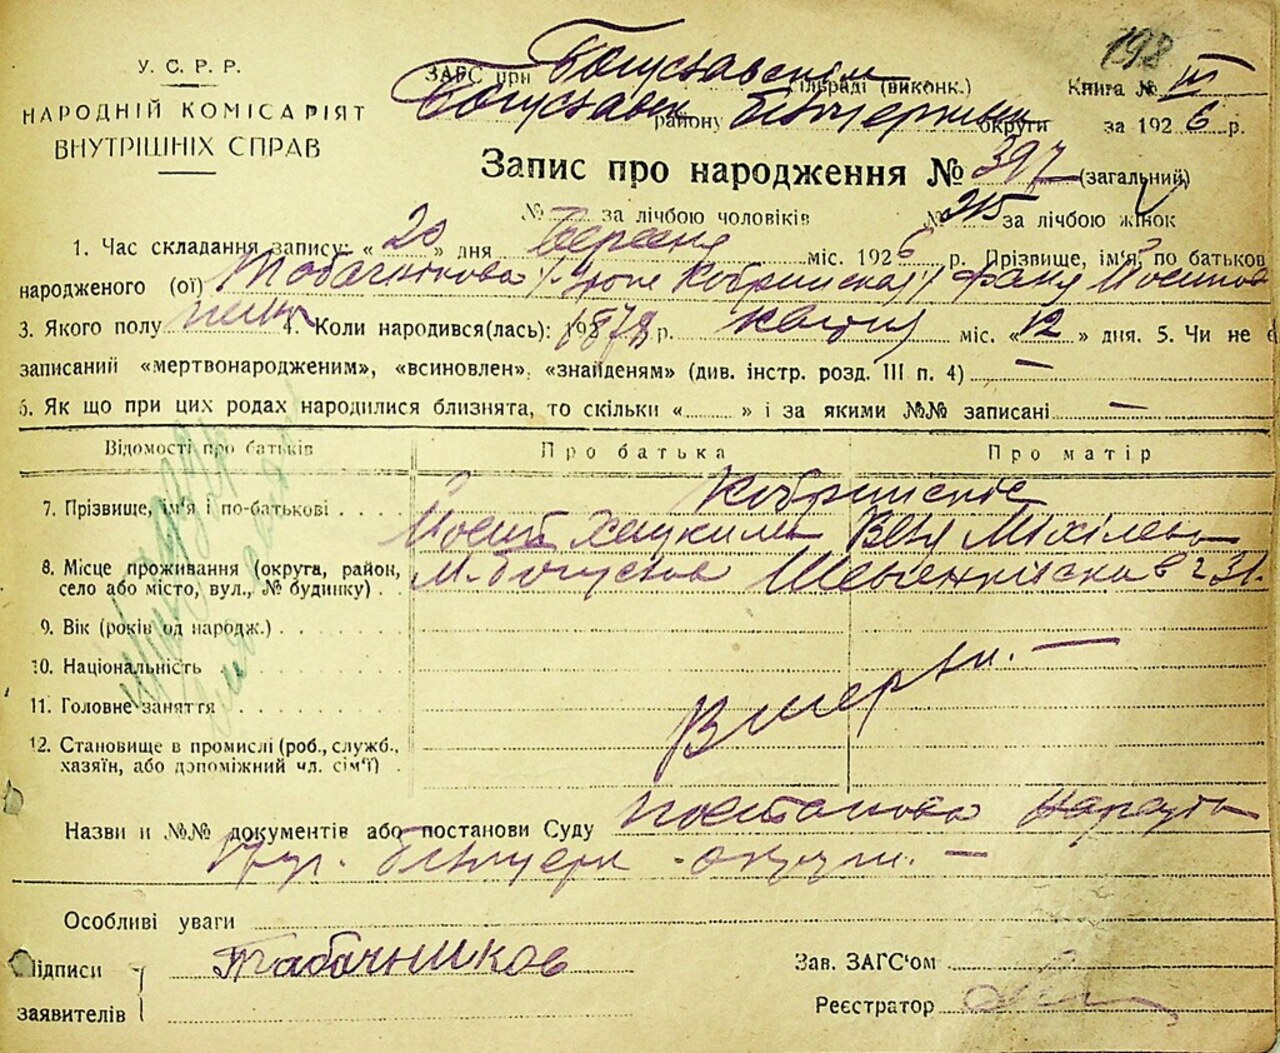 198
У. С. Р. Р.
НАРОДНІЙ КОМІСАРІЯТ
ВНУТРІШНІХ СПРАВ
ЗАГС при Богуславській сільраді (виконк.) Книга № III
Богуславськ району Білоцерківськ округи за 1926 р.
Запис про народження № 397 (загальний)
№ за лічбою чоловіків № 215 за лічбою жінок
1. Час складання запису: « 20 » дня Березня міс. 1926 р. Прізвище, ім'я, по батьков
народженого (ої) Табачнікова /урож Кобринская/ Фаня Иосипов
3. Якого полу жіноч 4. Коли народився(лась): 1878 р. квітня міс. « 12 » дня. 5. Чи не є
записаний «мертвонародженим», «всиновлен», «знайденям» (див. інстр. розд. III п. 4) —
6. Як що при цих родах народилися близнята, то скільки « » і за якими №№ записані —
Відомості про батьків Про батька Про матір
7. Прізвище, ім'я і по-батькові Кобринские
Иосип Хацкилев Вея Міхілевн
8. Місце проживання (округа, район, село або місто, вул., № будинку) м. Богуслав Шевченківска в 231.
9. Вік (років од народж.)
10. Національність
11. Головне заняття
Вмерли. —
12. Становище в промислі (роб., служб., хазяїн, або допоміжний чл. сім'ї)
Назви и №№ документів або постанови Суду постанова Нарсуда
Білоцерк. округи. —
Особливі уваги
Підписи Табачников Зав. ЗАГС'ом
заявителів Реєстратор